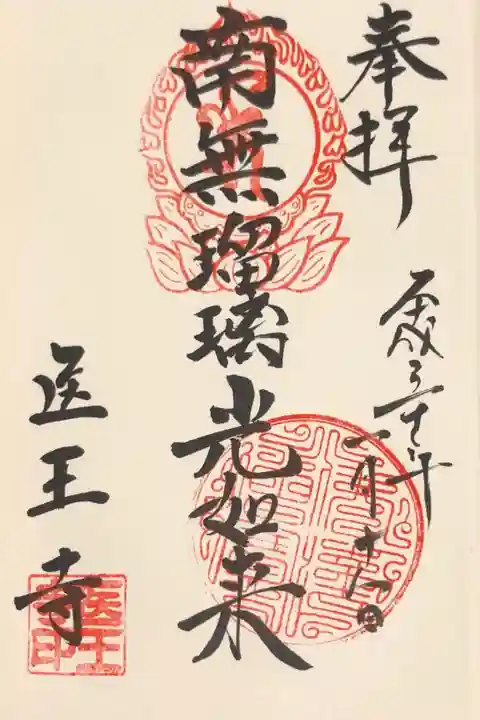 奉拝
平成三十年
一月十八日
南無瑠璃光如来
医王寺
医王寺印